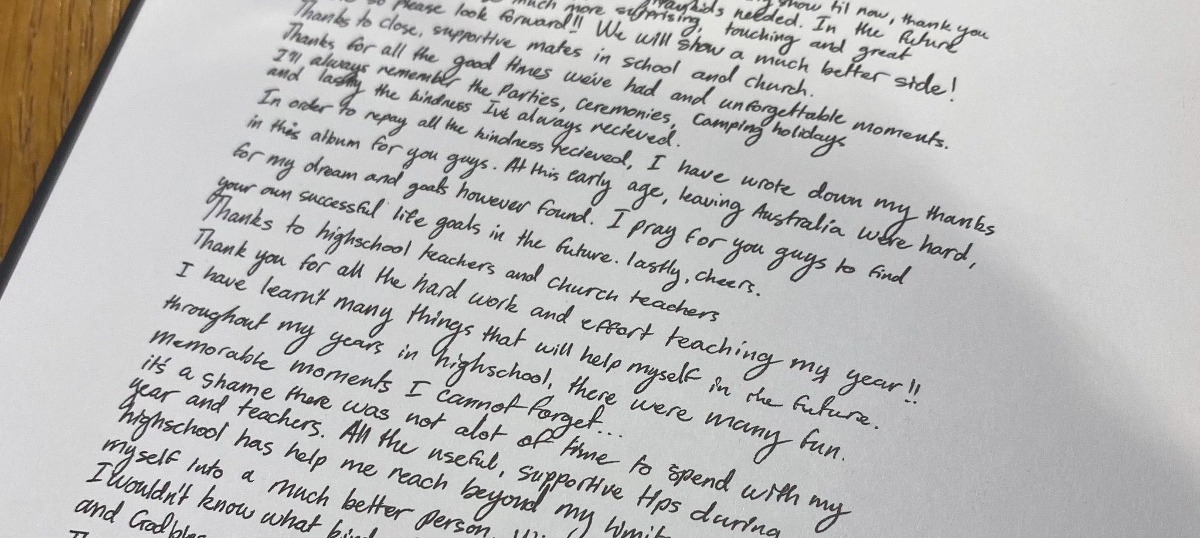 show til now, thank you
needed. In the future
so please look forward!! We will show a much better side!
much more surprising, touching and great
Thanks to close, supportive mates in school and church.
Thanks for all the good times we've had and unforgettable moments.
I'll always remember the Parties, Ceremonies, Camping holidays
and lastly the kindness I've always recieved.
In order to repay all the kindness recieved, I have wrote down my thanks
in this album for you guys. At this early age, leaving Australia were hard,
for my dream and goals however found. I pray for you guys to find
your own successful life goals in the future. lastly, cheers.
Thanks to highschool teachers and church teachers
Thank you for all the hard work and effort teaching my year!!
I have learn't many things that will help myself in the future.
throughout my years in highschool, there were many fun.
memorable moments I cannot forget...
it's a shame there was not alot of time to spend with my
year and teachers. All the useful, supportive tips during
highschool has help me reach beyond my
myself into a much better person.
I wouldn't know what
and God